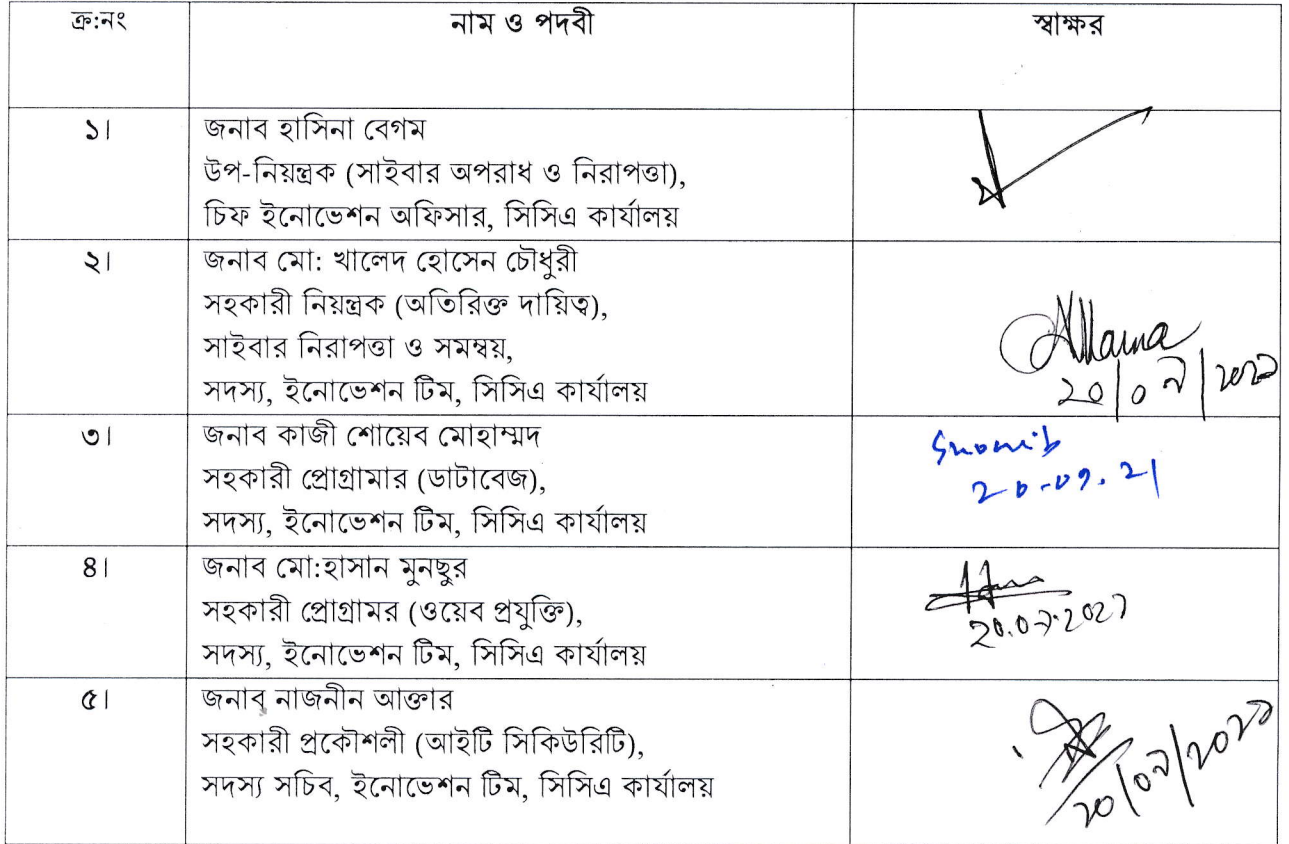 ক্র:নং নাম ও পদবী স্বাক্ষর
১। জনাব হাসিনা বেগম
উপ-নিয়ন্ত্রক (সাইবার অপরাধ ও নিরাপত্তা),
চিফ ইনোভেশন অফিসার, সিসিএ কার্যালয়
২। জনাব মো: খালেদ হোসেন চৌধুরী
সহকারী নিয়ন্ত্রক (অতিরিক্ত দায়িত্ব),
সাইবার নিরাপত্তা ও সমন্বয়,
সদস্য, ইনোভেশন টিম, সিসিএ কার্যালয়
৩। জনাব কাজী শোয়েব মোহাম্মদ
সহকারী প্রোগ্রামার (ডাটাবেজ),
20.09.21
সদস্য, ইনোভেশন টিম, সিসিএ কার্যালয়
৪। জনাব মো:হাসান মুনছুর
সহকারী প্রোগ্রামর (ওয়েব প্রযুক্তি),
সদস্য, ইনোভেশন টিম, সিসিএ কার্যালয়
৫। জনাব নাজনীন আক্তার
সহকারী প্রকৌশলী (আইটি সিকিউরিটি),
সদস্য সচিব, ইনোভেশন টিম, সিসিএ কার্যালয়